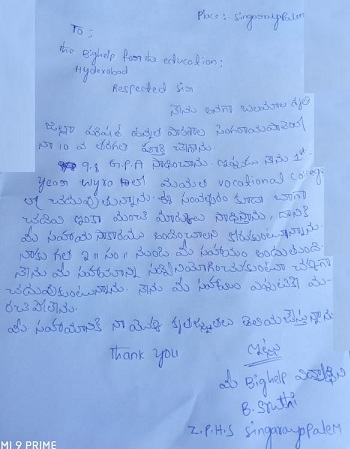 Place: Singarayapalem
To:
the Bighelp for the education:
Hyderabad
Respected Sir
నేను అనగా
జిల్లా పరిషత్ ఉన్నత పాఠశాల సింగరాయపాలెం
నా 10 వ తరగతి పూర్తి చేశాను.
9.8 G.P.A సాధించాను. ఇప్పుడు నేను 1st
year లో vocational college
లో చదువుతున్నాను. ఈ సంవత్సరం కూడా బాగా
చదివి ఇంకా మంచి మార్కులు సాధిస్తాను. దానికి
మీ సహాయ సహకారము అందించాలని కోరుకుంటున్నాను.
నాకు గత 2 సం॥ నుండి మీ సహాయం అందుతుంది.
నేను మీ సహాయాన్ని సద్వినియోగించుకుంటూ చక్కగా
చదువుకుంటున్నాను. నేను మీ సహాయం ఎప్పటికీ మ-
రచిపోలేను.
మీ సహాయానికి నా యొక్క కృతజ్ఞతలు తెలియచేస్తున్నాను.
Thank you
ఇట్లు
మీ Bighelp విద్యార్థిని
B. Sruthi
Z.P.H.S Singarayapalem
MI 9 PRIME